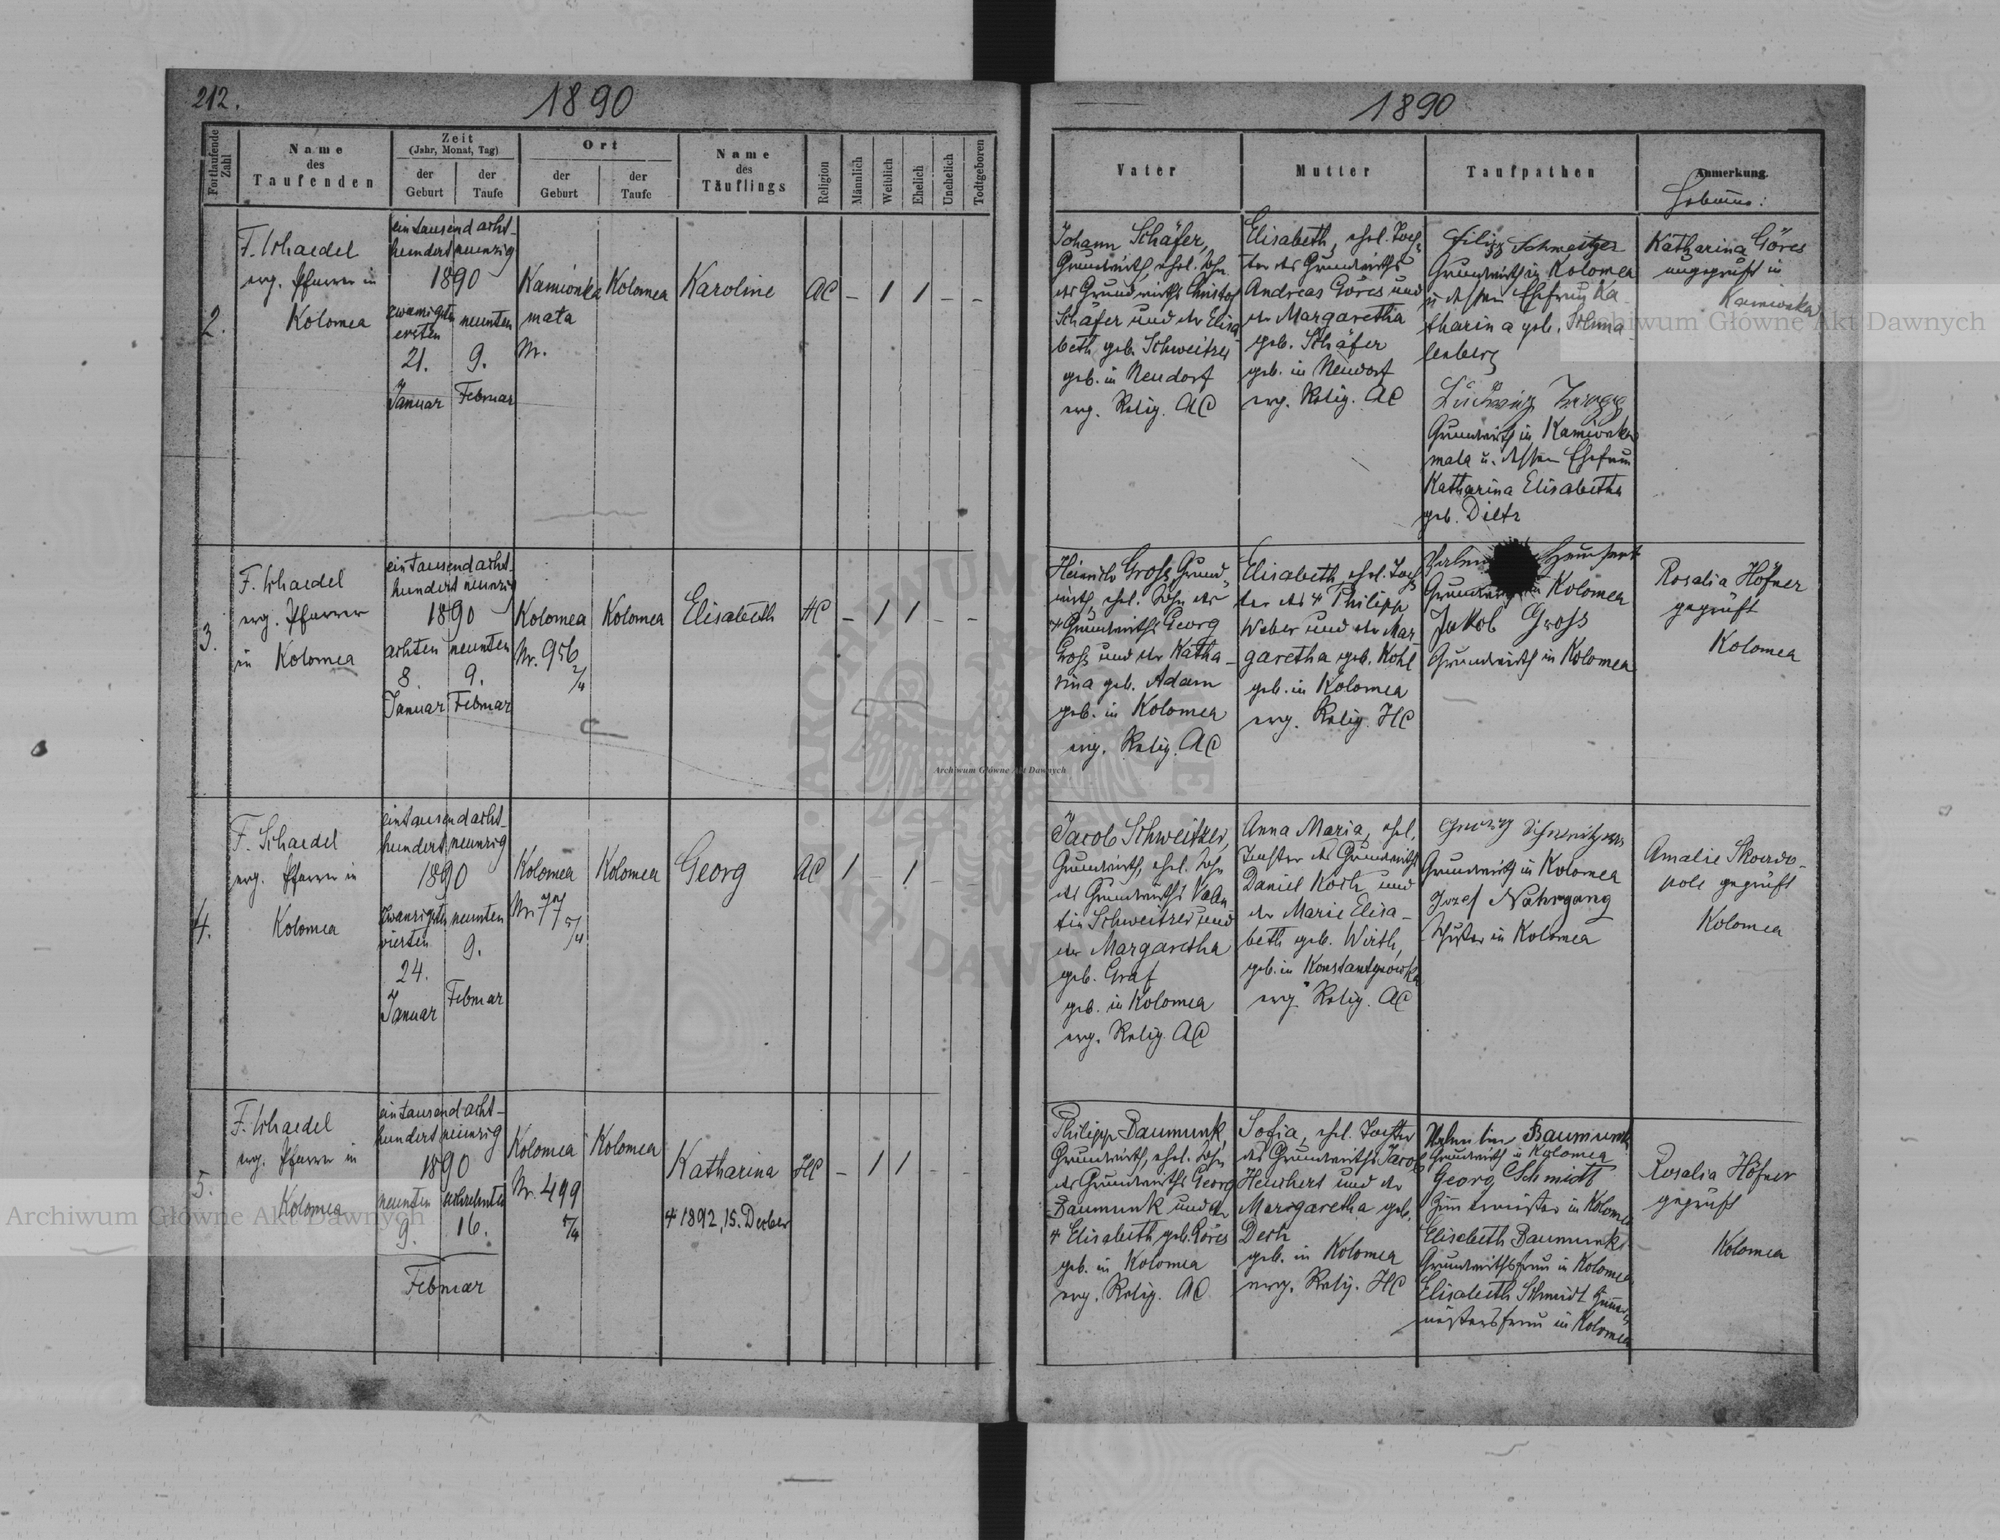 212.
1890
Fortlaufende Zahl
Name
des
Taufenden
Zeit
(Jahr, Monat, Tag)
der
Geburt
der
Taufe
Ort
der
Geburt
der
Taufe
Name
des
Täuflings
Religion
Männlich
Weiblich
Ehelich
Unehelich
Todtgeboren
1890
Vater
Mutter
Taufpathen
Anmerkung.
2.
F. Schaedel
evg. Pfarrer in
Kolomea
eintausend acht-
hundert neunzig
1890
zwanzigsten
ersten
21.
Januar
neunten
9.
Februar
Kamionka
mała
Nr.
Kolomea
Karoline
AC
– / / – –
Johann Schäfer,
Grundwirth, ehel. Sohn
des Grundwirths Christof
Schäfer und der Elisa
beth geb. Schweitzer
geb. in Neudorf
evg. Relig. AC
Elisabeth, ehel. Toch-
ter des Grundwirths
Andreas Göres und
der Margaretha
geb. Schäfer
geb. in Neudorf
evg. Relig. AC
Filipp Schweitzer
Grundwirth in Kolomea
u. dessen Ehefrau Ka-
tharina geb. Schma-
lenberg
Grundwirth in Kamionka
mała u. dessen Ehefrau
Katharina Elisabetha
geb. Dietz
Katharina Göres
ungeprüft in
Kamionka
3.
F. Schaedel
evg. Pfarrer
in Kolomea
eintausend acht-
hundert neunzig
1890
achten
8.
Januar
neunten
9.
Februar
Kolomea
Nr. 956
2/4
Kolomea
Elisabeth
HC
– / / – –
Heinrich Groß, Grund-
wirth, ehel. Sohn des
Grundwirths Georg
Groß und der Katha-
rina geb. Adam
geb. in Kolomea
evg. Relig. AC
Elisabeth, ehel. Toch-
ter des Philipp
Weber und der Mar
garetha geb. Kohl
geb. in Kolomea
evg. Relig. HC
Grundwirth in Kolomea
Jakob Gross
Grundwirth in Kolomea
Rosalia Höfner
geprüft
Kolomea
4.
F. Schaedel
evg. Pfarrer in
Kolomea
eintausend acht-
hundert neunzig
1890
zwanzigsten
vierten
24.
Januar
neunten
9.
Februar
Kolomea
Nr. 77
5/4
Kolomea
Georg
AC
/ – / – –
Jacob Schweitzer,
Grundwirth, ehel. Sohn
des Grundwirths Valen
tin Schweitzer und
der Margaretha
geb. Graf
geb. in Kolomea
evg. Relig. AC
Anna Maria, ehel.
Tochter des Grundwirth
Daniel Koch und
der Marie Elisa-
beth geb. Wirth,
geb. in Konstantynowka
evg. Relig. AC
Grundwirth in Kolomea
Josef Nahrgang
Schuster in Kolomea
Amalie Skowro-
nole geprüft
Kolomea
5.
F. Schaedel
evg. Pfarrer in
Kolomea
eintausend acht-
hundert neunzig
1890
neunten
9.
sechzehnten
16.
Februar
Kolomea
Nr. 499
Kolomea
Katharina
1892, 15. Dezber
HC
– / / – –
Philipp Baumunk,
Grundwirth, ehel. Sohn
des Grundwirths Georg
Baumunk und der
Elisabeth geb. Göres
geb. in Kolomea
evg. Relig. AC
Sofia, ehel. Tochter
des Grundwirths Jacob
Heuchert und der
Margaretha geb.
geb. in Kolomea
evg. Relig. HC
Valentin Baumunk
Grundwirth in Kolomea
Georg Schmidt
Zimmermeister in Kolomea
Elisabeth Baumunk
Grundwirthsfrau in Kolomea
Elisabeth Schmidt Zimmer-
meistersfrau in Kolomea
Rosalia Höfner
geprüft
Kolomea
Archiwum Główne Akt Dawnych
Archiwum Główne Akt Dawnych
Archiwum Główne Akt Dawnych